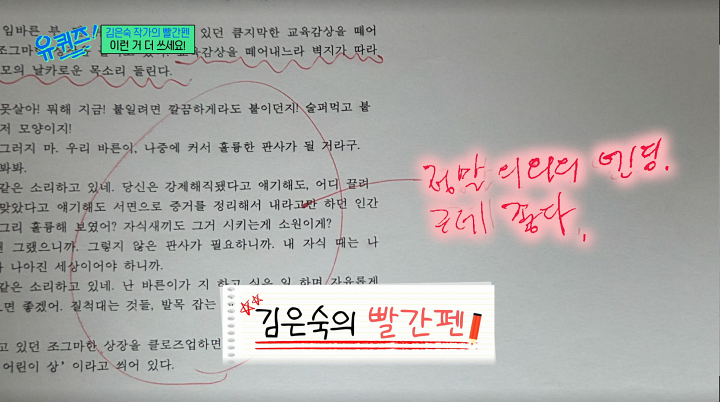 유퀴즈!
김은숙 작가의 빨간펜
이런 거 더 쓰세요!
임바른 부 있던 큼지막한 교육감상을 떼어
교육감상을 떼어내느라 벽지가 따라
모의 날카로운 목소리 들린다.
못살아! 뭐해 지금! 붙일려면 깔끔하게라도 붙이던지! 술퍼먹고 붙
저 모양이지!
그러지 마. 우리 바른이, 나중에 커서 훌륭한 판사가 될 거라구.
봐봐.
같은 소리하고 있네. 당신은 강제해직됐다고 얘기해도, 어디 끌려
맞았다고 얘기해도 서면으로 증거를 정리해서 내라고만 하던 인간
그리 훌륭해 보였어? 자식새끼도 그거 시키는게 소원이게?
그랬으니까. 그렇지 않은 판사가 필요하니까. 내 자식 때는 나
나아진 세상이어야 하니까.
같은 소리하고 있네. 난 바른이가 지 하고 싶은 일 하며 자유롭게
면 좋겠어. 질척대는 것들, 발목 잡는
고 있던 조그마한 상장을 클로즈업하면
어린이 상' 이라고 씌어 있다.
정말 의외의 엔딩.
근데 좋다.
김은숙의 빨간펜